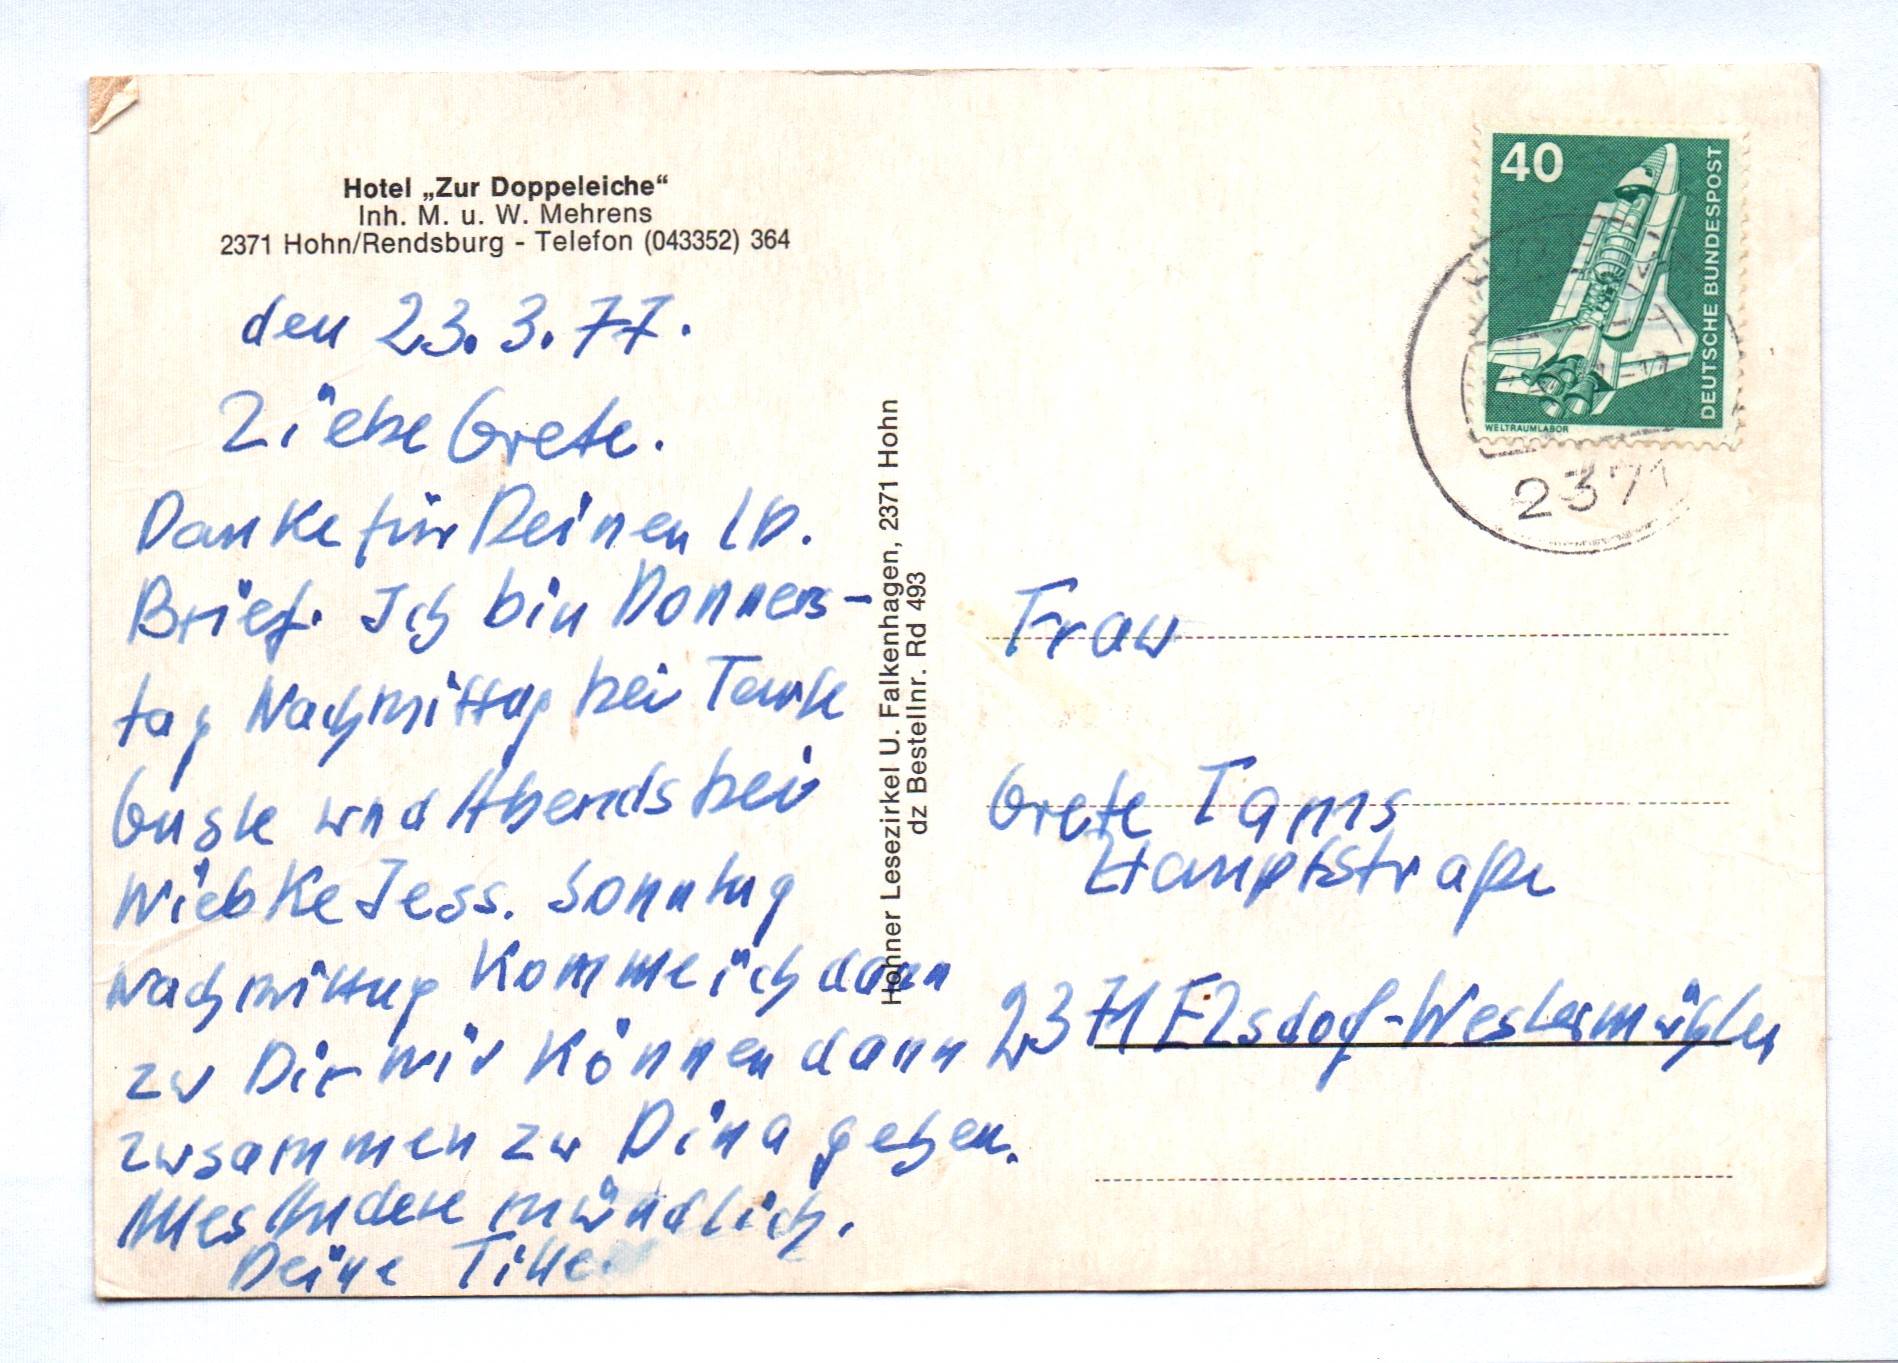 Hotel „Zur Doppeleiche“
Inh. M. u. W. Mehrens
2371 Hohn/Rendsburg - Telefon (043352) 364
den 23.3.77.
Liebe Grete.
Danke für Deinen lb.
Brief. Ich bin Donners-
tag Nachmittag bei Tante
Guste und Abends bei
Wiebke Jess. Sonntag
nachmittag komme ich dann
zu Dir wir können dann
zusammen zu Dina gehen.
Alles Andere mündlich.
Deine Tille.
Hohner Lesezirkel U. Falkenhagen, 2371 Hohn
dz Bestellnr. Rd 493
40
DEUTSCHE BUNDESPOST
WELTRAUMLABOR
2371
Frau
Grete Tams
Hauptstraße
2371 Elsdorf-Westermühlen